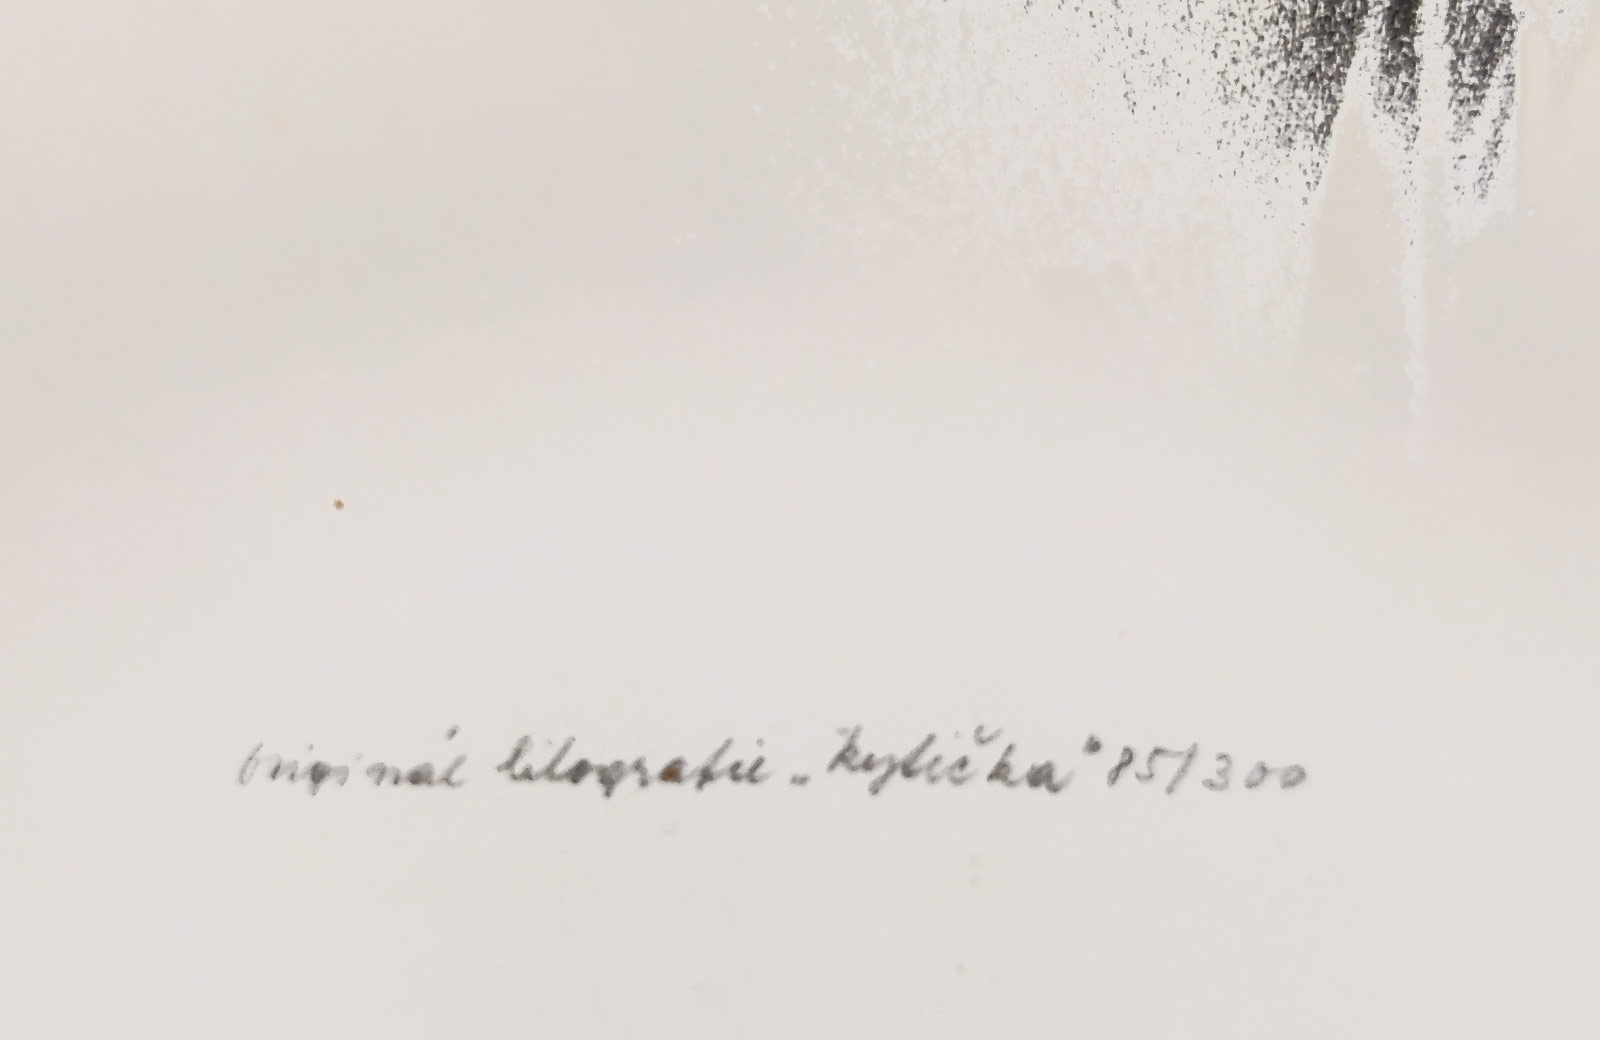 originál litografie „Kytička“ 85/300